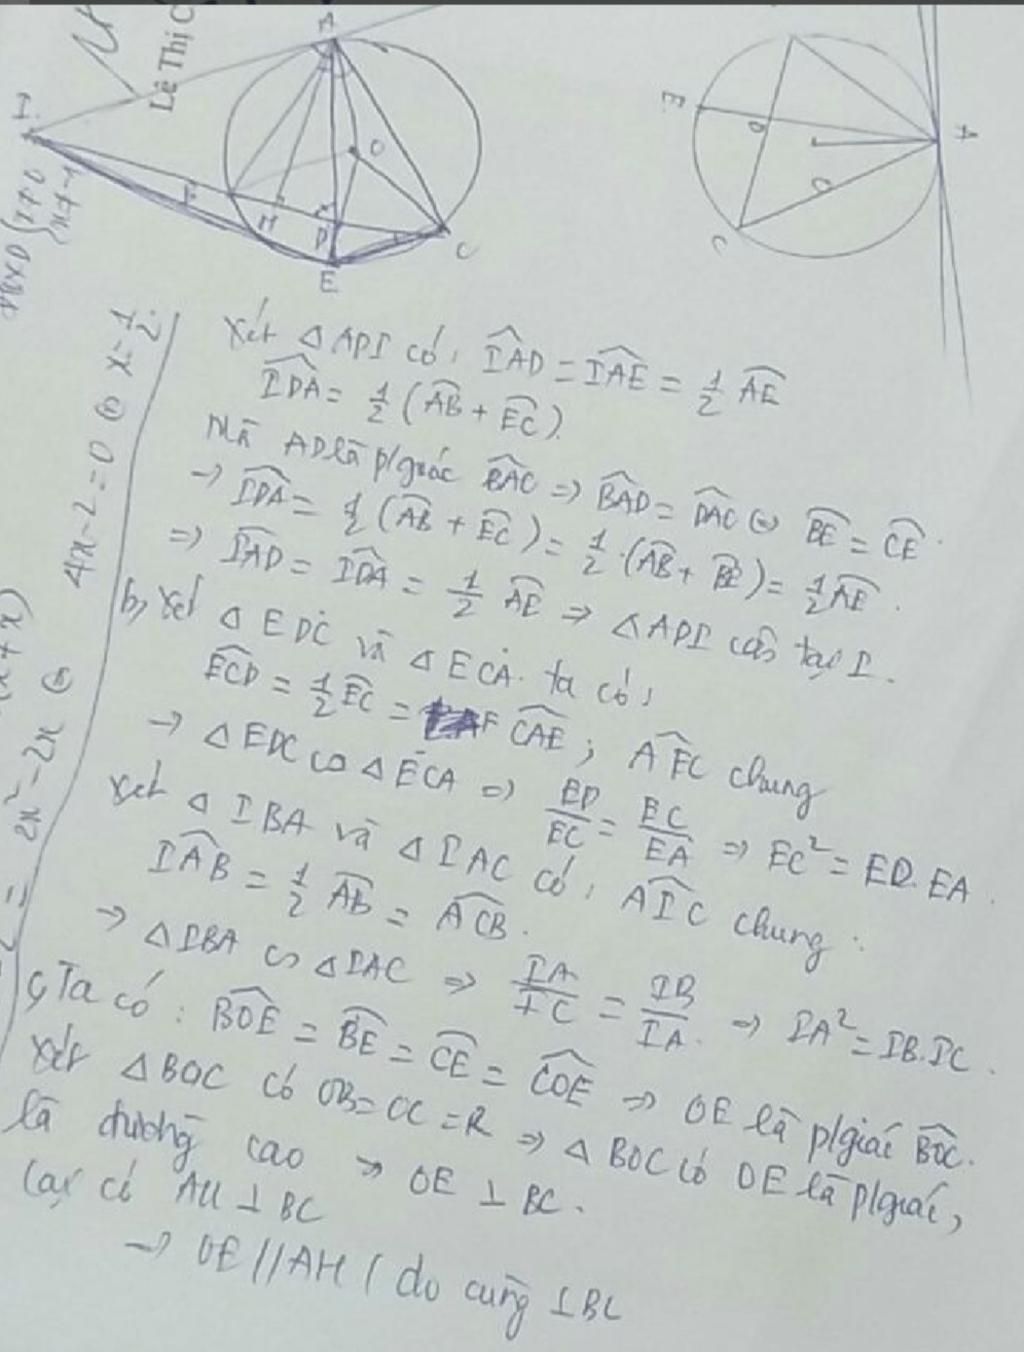 Lê Thị C
A
I
O
H
D
E
C
E
D
O
C
A
4x-2=0 ⇔ x=1/2.
2x²-2x ⇔
Xét △ADI có: \widehat{IAD} = \widehat{IAE} = 1/2 \overparen{AE}
\widehat{IDA} = 1/2 (\overparen{AB} + \overparen{EC}).
Mà AD là p/giác \widehat{BAC} => \widehat{BAD} = \widehat{DAC} ⇔ \overparen{BE} = \overparen{CE}.
-> \widehat{IDA} = 1/2 (\overparen{AB} + \overparen{EC}) = 1/2.(\overparen{AB} + \overparen{BE}) = 1/2 \overparen{AE}.
=> \widehat{IAD} = \widehat{IDA} = 1/2 \overparen{AE} => △ADI cân tại I.
b, Xét △EDC và △ECA. ta có:
\widehat{ECD} = 1/2 \overparen{EC} = \widehat{CAE}; \widehat{AEC} chung
-> △EDC ∽ △ECA => ED/EC = EC/EA => EC² = ED.EA.
Xét △IBA và △IAC có: \widehat{AIC} chung.
\widehat{IAB} = 1/2 \overparen{AB} = \widehat{ACB}.
-> △IBA ∽ △IAC => IA/IC = IB/IA. => IA² = IB.IC.
c, Ta có: \widehat{BOE} = \overparen{BE} = \overparen{CE} = \widehat{COE} => OE là p/giác \widehat{BOC}.
Xét △BOC có OB=OC=R => △BOC có OE là p/giác,
là đường cao => OE ⊥ BC.
Lại có AH ⊥ BC
-> OE//AH ( do cùng ⊥BC